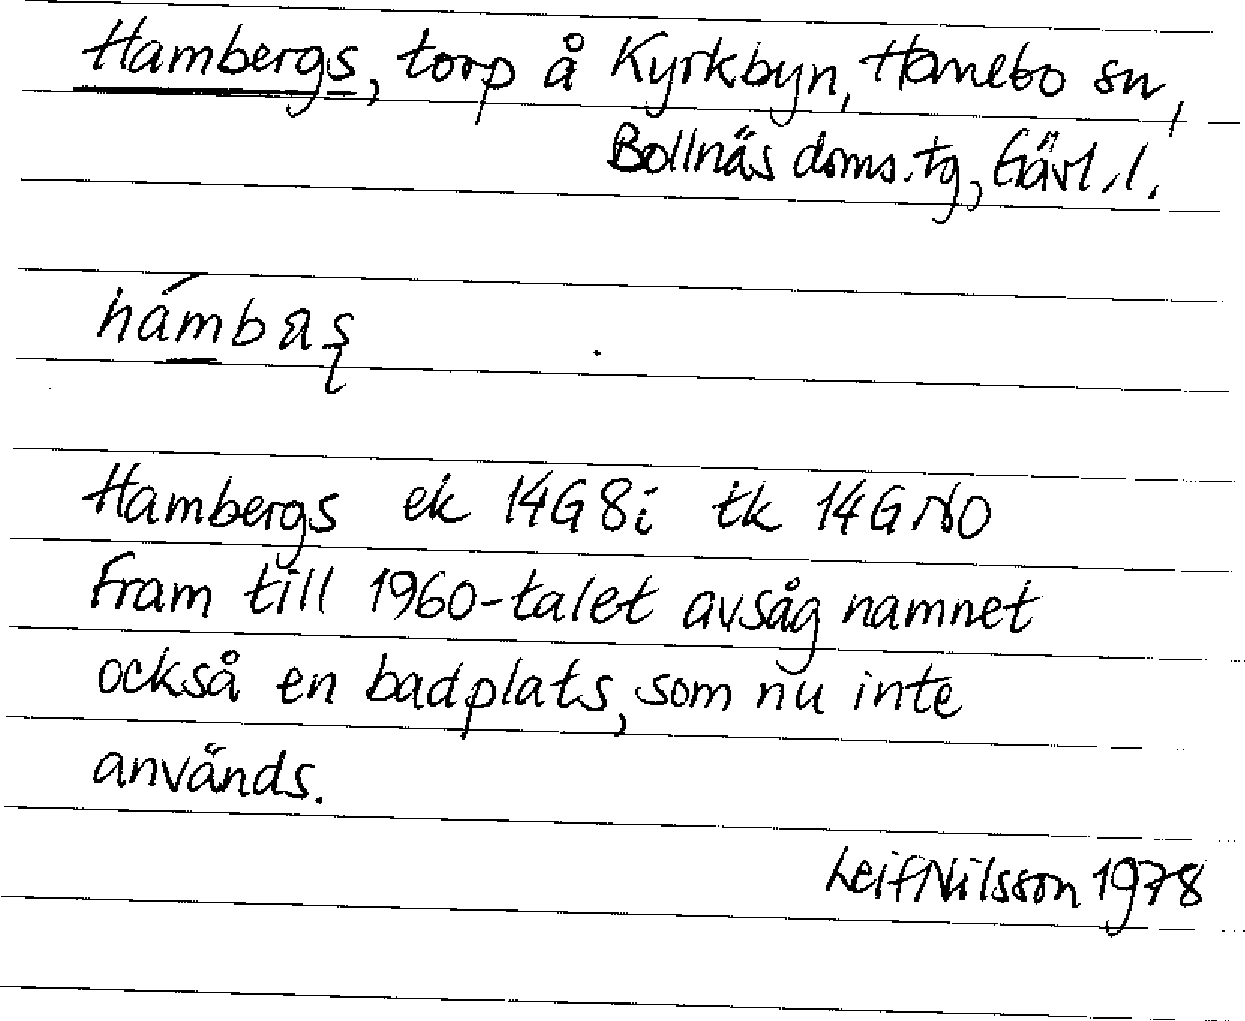 Hambergs, torp å Kyrkbyn, Hanebo sn,
Bollnäs doms.tg, Gävl.l.
hámbaş
Hambergs ek 14G8i tk 14GNO
Fram till 1960-talet avsåg namnet
också en badplats, som nu inte
används.
Leif Nilsson 1978